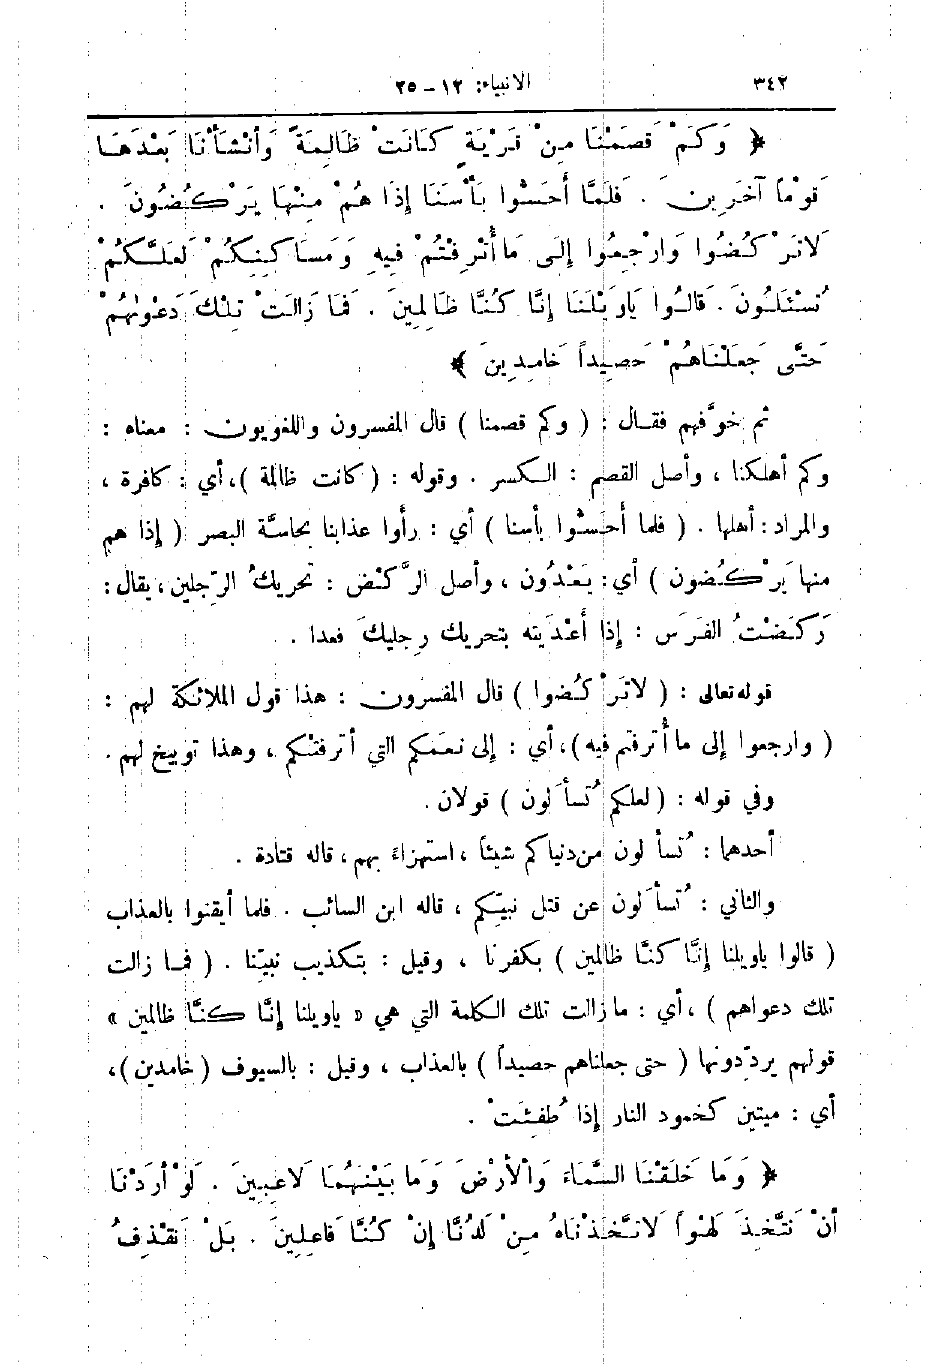 ٣٤٢ الانبياء: ١٢ – ٢٥
﴿ وَكَمْ قَصَمْنَا مِنْ قَرْيَةٍ كَانَتْ ظَالِمَةً وَأَنْشَأْنَا بَعْدَهَا
قَوْمًا آخَرِينَ . فَلَمَّا أَحَسُّوا بَأْسَنَا إِذَا هُمْ مِنْهَا يَرْكُضُونَ .
لَاتَرْكُضُوا وَارْجِعُوا إِلَى مَا أُتْرِفْتُمْ فِيهِ وَمَسَاكِنِكُمْ لَعَلَّكُمْ
تُسْئَلُونَ . قَالُوا يَاوَيْلَنَا إِنَّا كُنَّا ظَالِمِينَ . فَمَا زَالَتْ تِلْكَ دَعْوٰيهُمْ
حَتَّى جَعَلْنَاهُمْ حَصِيداً خَامِدِينَ ﴾
ثم خوَّفهم فقال : ( وكم قصمنا ) قال المفسرون واللغويون : معناه :
وكم أهلكنا ، وأصل القصم : الكسر . وقوله : ( كانت ظالمة )، أي : كافرة ،
والمراد : أهلها . ( فلما أحَسُّوا بأسنا ) أي : رأوا عذابنا بحاسَّة البصر ( إذا هم
منها يَرْكُضون ) أي : يَعْدُون ، وأصل الرَّكْض : تحريكُ الرِّجلين ، يقال :
رَكَضْتُ الفَرَس : إذا أَعْدَيته بتحريك رِجليكَ فعدا .
قوله تعالى : ( لاتَرْكُضوا ) قال المفسرون : هذا قول الملائكة لهم :
( وارجعوا إلى ما أُترفتم فيه )، أي : إلى نعَمكم التي أترفتْكم ، وهذا توبيخ لهم .
وفي قوله : ( لعلكم تُسأَلون ) قولان .
أحدهما : تُسأَلون من دنياكم شيئاً ، استهزاءً بهم ، قاله قتادة .
والثاني : تُسأَلون عن قتل نبيِّكم ، قاله ابن السائب . فلما أيقنوا بالعذاب
( قالوا ياويلنا إِنَّا كنَّا ظالمين ) بكفرنا ، وقيل : بتكذيب نبيِّنا . ( فما زالت
تلك دعواهم )، أي : مازالت تلك الكلمة التي هي « ياويلنا إِنَّا كنَّا ظالمين »
قولهم يردِّدونها ( حتى جعلناهم حصيداً ) بالعذاب ، وقيل : بالسيوف ( خامدين )،
أي : ميتين كخمود النار إذا طُفِئَتْ .
﴿ وَمَا خَلَقْنَا السَّمَاءَ وَالْأَرْضَ وَمَا بَيْنَهُمَا لَاعِبِينَ . لَوْ أَرَدْنَا
أَنْ نَتَّخِذَ لَهْواً لَاتَّخَذْنَاهُ مِنْ لَدُنَّا إِنْ كُنَّا فَاعِلِينَ . بَلْ نَقْذِفُ